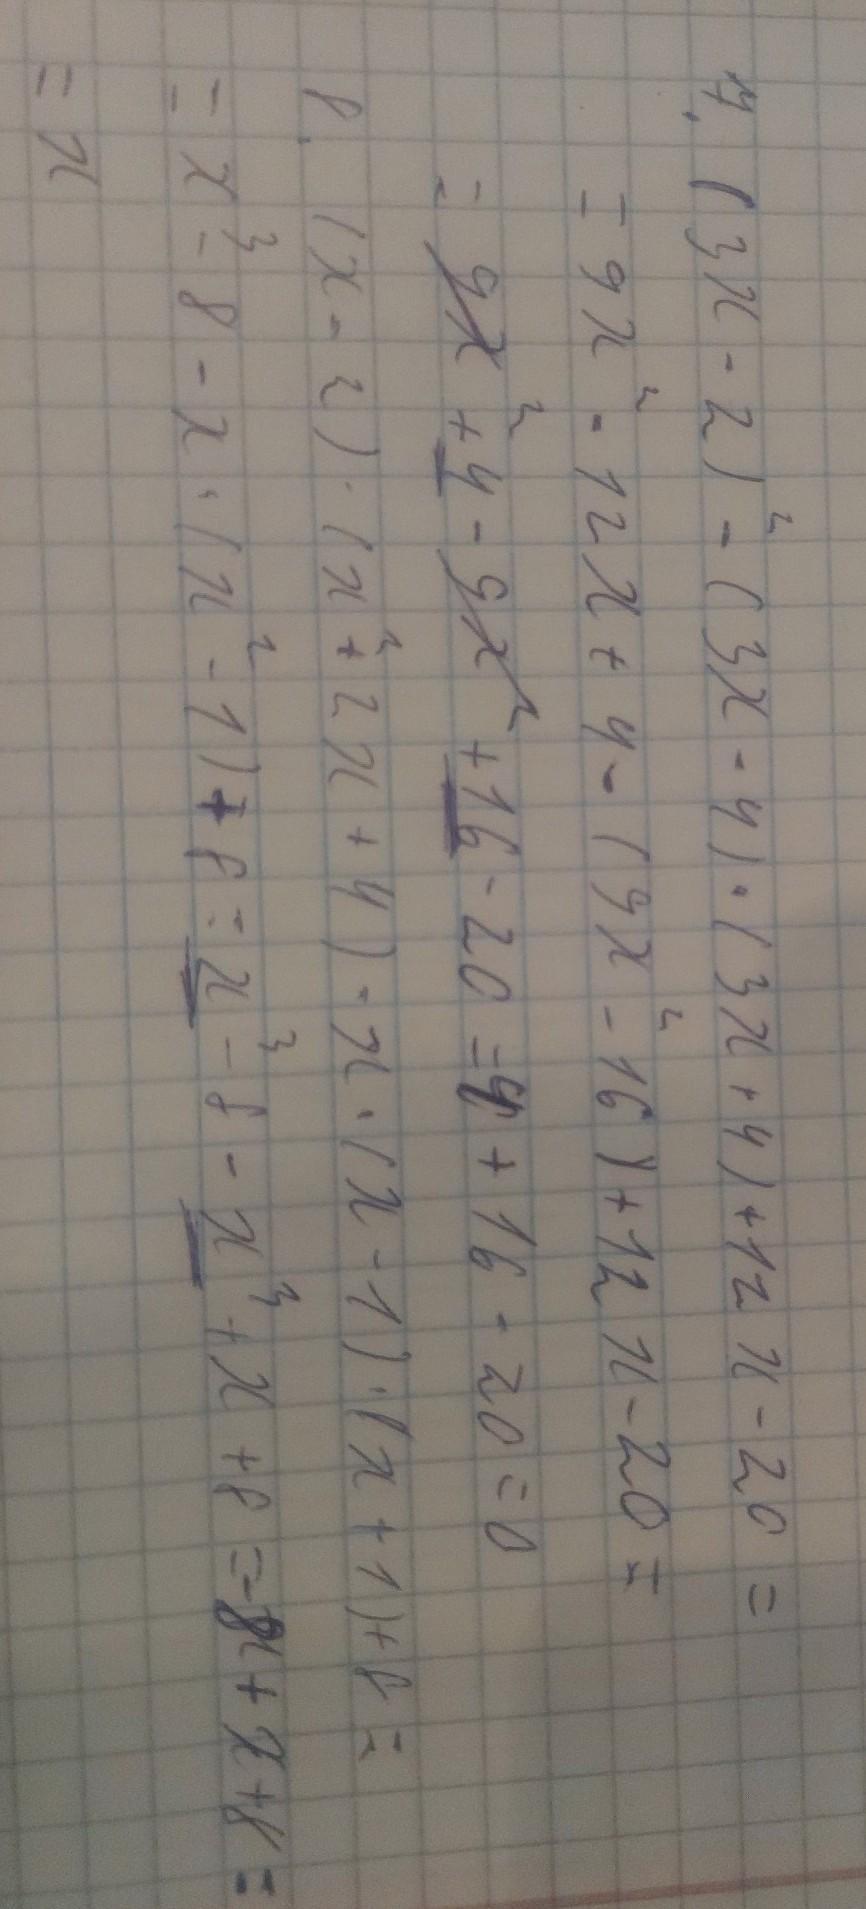 7. (3x-2)²-(3x-4)·(3x+4)+12x-20=
=9x²-12x+4-(9x²-16)+12x-20=
=9x²+4-9x²+16-20=4+16-20=0
8. (x-2)·(x²+2x+4)-x·(x-1)·(x+1)+8=
=x³-8-x·(x²-1)+8=x³-8-x³+x+8=-8+x+8=
=x